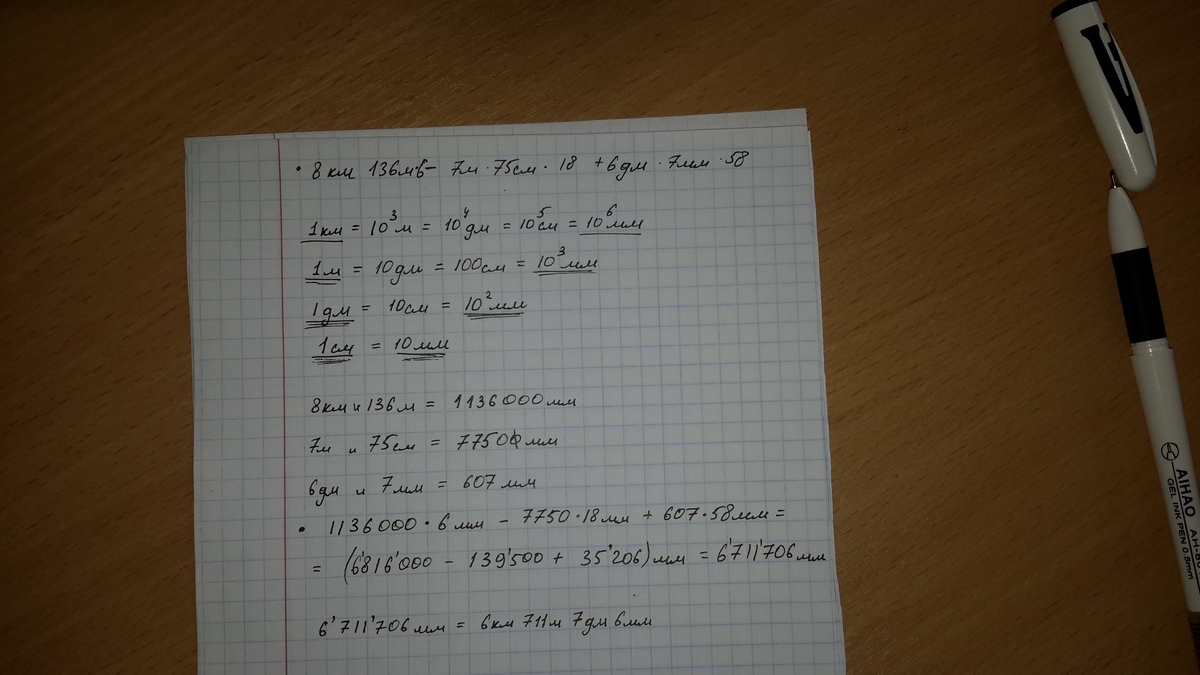 • 8 км 136м·6 - 7м · 75см · 18 + 6дм · 7мм · 58
1км = 10³м = 10⁴дм = 10⁵см = 10⁶мм
1м = 10дм = 100см = 10³мм
1дм = 10см = 10²мм
1см = 10мм
8км и 136м = 1136000мм
7м и 75см = 77500мм
6дм и 7мм = 607мм
• 1136000 · 6мм - 7750 · 18мм + 607 · 58мм =
= (6'816'000 - 139'500 + 35'206)мм = 6'711'706мм
6'711'706мм = 6км 711м 7дм 6мм
AIHAO
GEL INK PEN 0.5mm